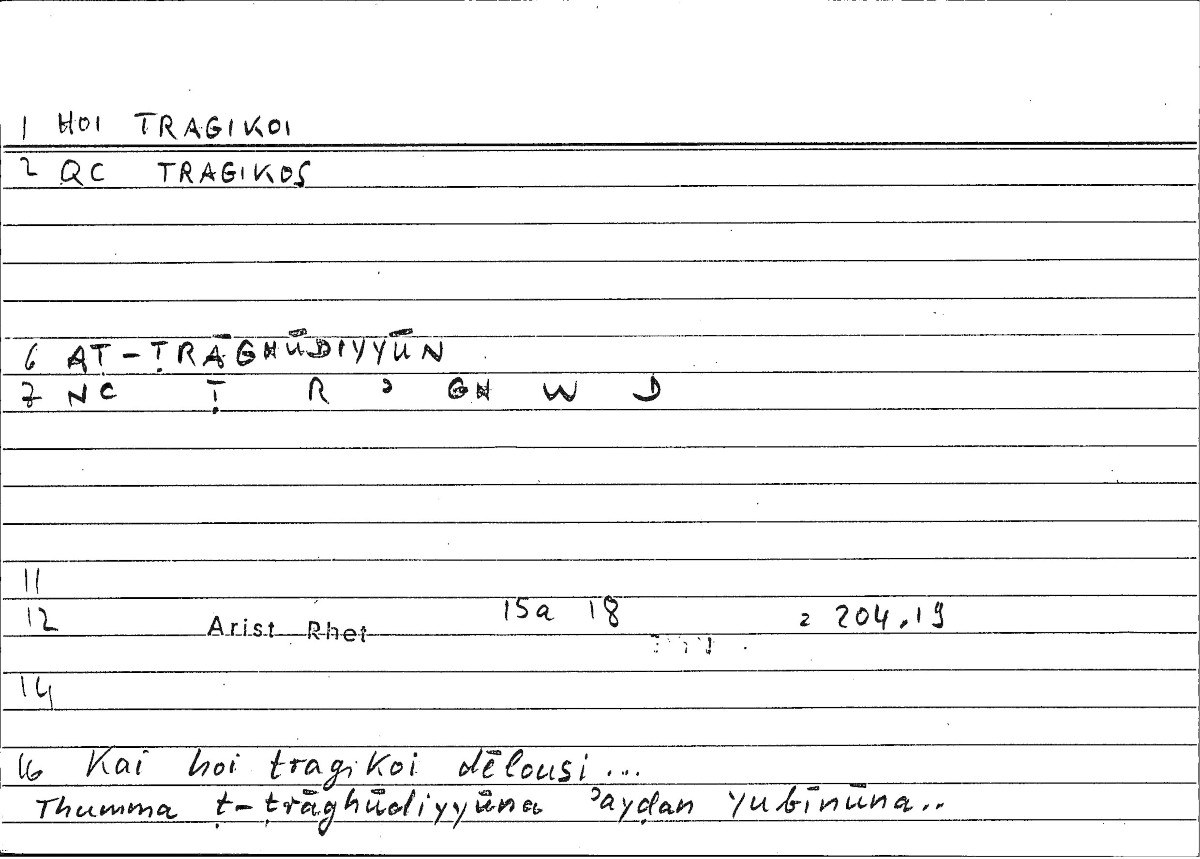 1 HOI TRAGIKOI
2 QC TRAGIKOS
6 AṬ-ṬRĀGHŪDIYYŪN
7 NC Ṭ R ʾ GH W D
11
12 Arist Rhet 15a 18 2 204.19
14
16 Kai hoi tragikoi dēlousi...
Thumma ṭ-ṭrāghūdiyyūna ʾayḍan yubīnūna..